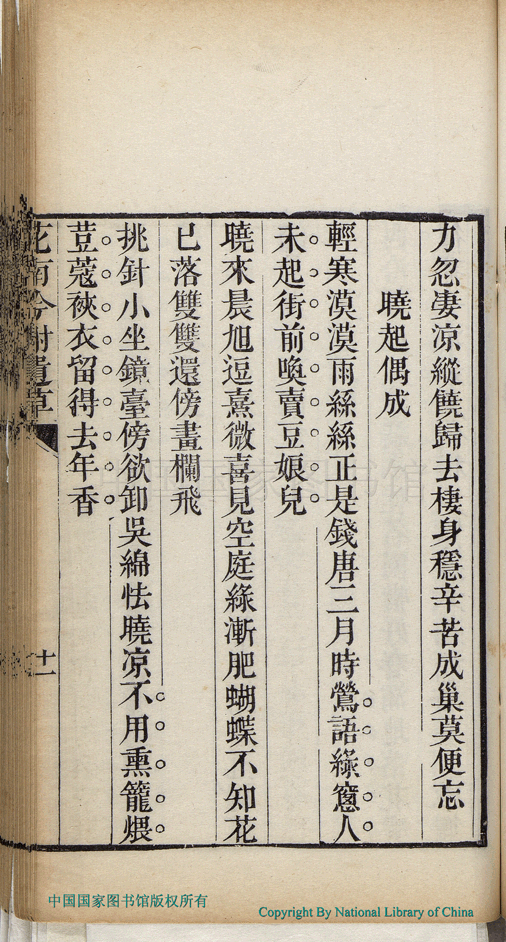 力忽凄涼縱饒歸去棲身穩辛苦成巢莫便忘
曉起偶成
輕寒漠漠雨絲絲正是錢唐三月時鶯語綠窻人
未起街前喚賣豆娘兒
曉來晨旭逗熹微喜見空庭綠漸肥蝴蝶不知花
已落雙雙還傍畫欄飛
挑針小坐鏡臺傍欲卸吳綿怯曉凉不用熏籠煨
荳蔻裌衣留得去年香
花南吟榭遺草
十一
中国国家图书馆版权所有
Copyright By National Library of China